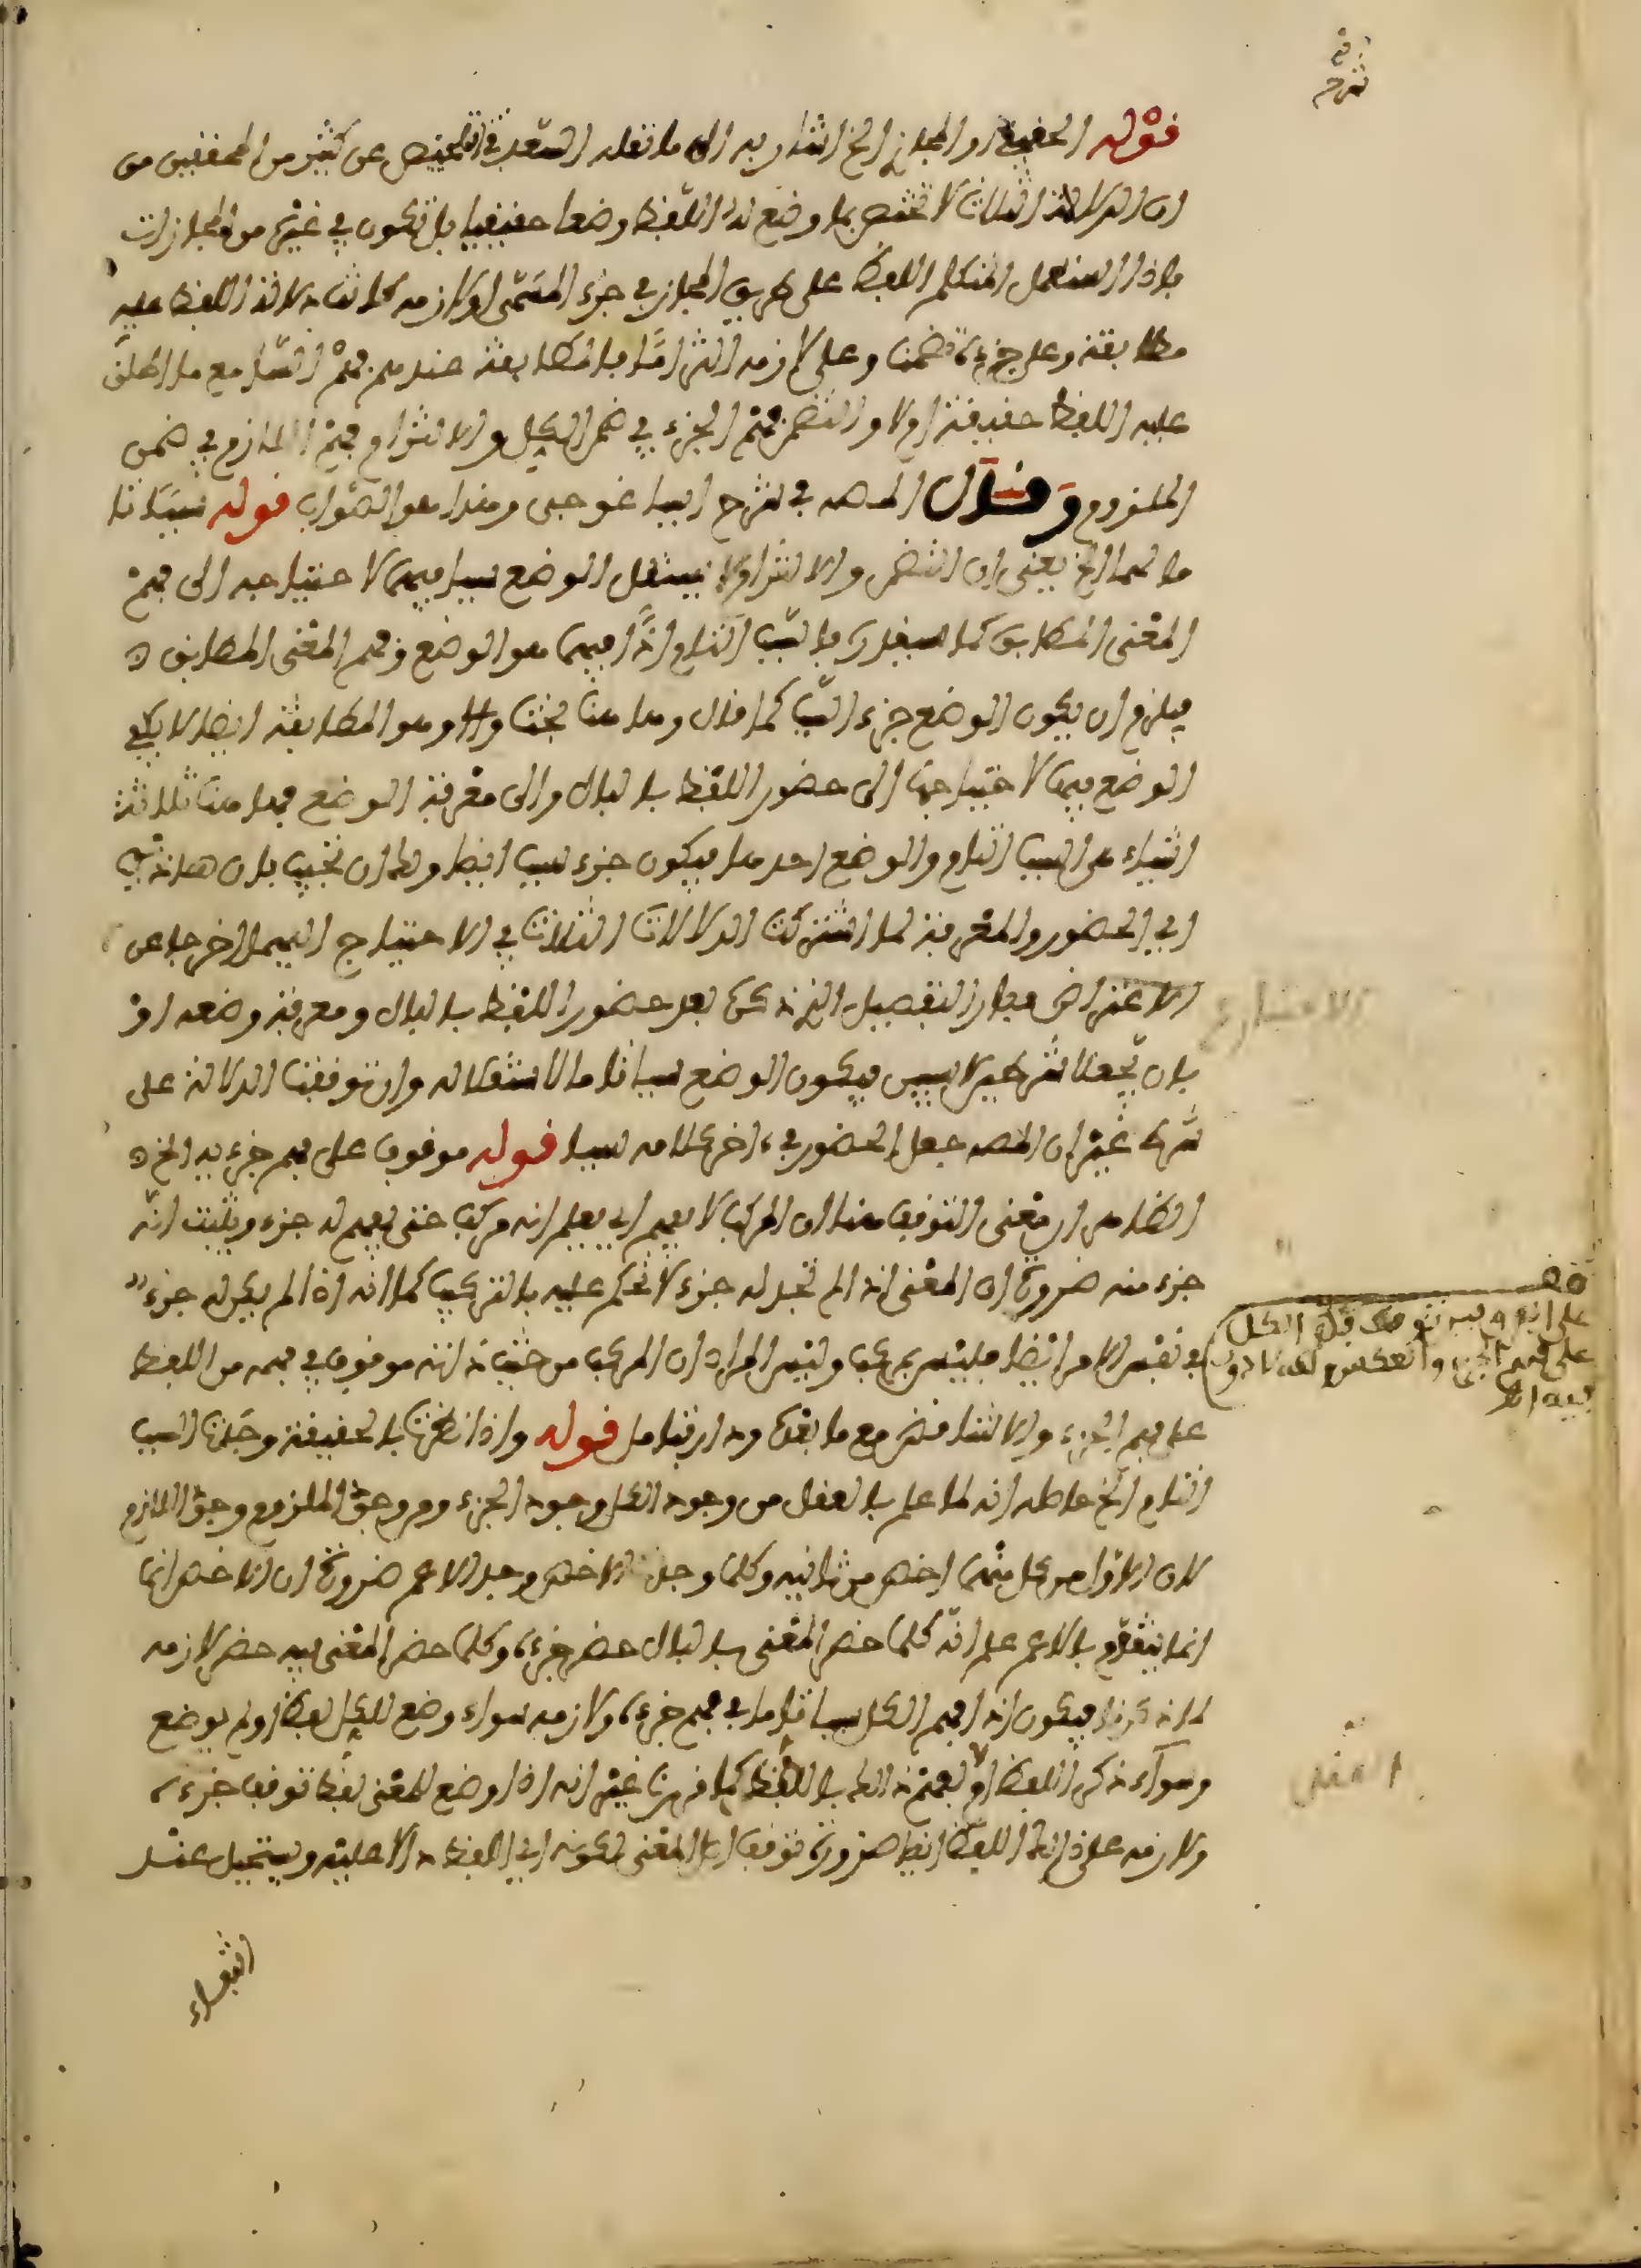 قوله الحقيقة او المجاز الخ اشار به الى ما نقله السعد في التلخيص عن كثير من المحققين من
ان الدلالة الثلاث لا تختص بما وضع له اللفظ وضعا حقيقيا بل تكون في غيره من المجازات
فاذا استعمل المتكلم اللفظ على طريق المجاز في جزء المسمى او لازمه كانت دلالة اللفظ عليه
مطابقة وعلى جزءه تضمنا وعلى لازمه التزاما فالمطابقة عندهم فهم السامع ما اطلق
عليه اللفظ حقيقة اولا والتضمن فهم الجزء في ضمن الكل والالتزام فهم اللازم في ضمن
الملزوم وقال المصـ في شرح ايساغوجي وهذا هو الصواب قوله سببا تا
ما لهما الخ يعني ان التضمن والالتزام لا يستقل الوضع سببا فيهما لاحتياجه الى فهم
المعنى المطابق كما سيقال فالسبب التام اذا فيهما هو الوضع وفهم المعنى المطابق
فيلزم ان يكون الوضع جزء السبب كما قال وها هنا بحث وهو المطابقة ايضا لا يكفي
الوضع فيها لاحتياجها الى حضور اللفظ بالبال والى معرفة الوضع فها هنا ثلاثة
اشياء هي السبب التام والوضع احدها فيكون جزء سبب ايضا ولها ان نجيب بان هاذين
اي الحضور والمعرفة لما اشتركت الدلالات الثلاث في الاحتياج اليهما اخرجا عن
الاعتراض وبان التفصيل الذي ذكره بعد حضور اللفظ بالبال ومعرفة وضعه او
بان يجعلا شرطين لا سببين فيكون الوضع سببا تاما لاستقلاله وان توقفت الدلالة على
شرط غير ان المصـ جعل الحضور في ءاخر كلامه سببا قوله موقوف على فهم جزءيه الخ
الظاهر ان معنى التوقف هنا ان المركب لا يفهم اي يعلم انه مركب حتى يفهم له جزء ويثبت انه
جزء منه ضرورة ان المعنى اذا لم تجد له جزء لا تحكم عليه بالتركيب كما انه اذا لم يكن له جزء
في نفس الامر ايضا فليس بمركب وليس المراد ان المركب من حيث ذاته موقوف في فهمه من اللفظ
على فهم الجزء والا لتناقض مع ما بعده وداير فتامل قوله واذا نظرنا بالحقيقة وجدنا السبب
التام الخ حاصله انه لما علم بالعقل من وجود الكل وجود الجزء ومن وجود الملزوم وجود اللازم
لان الاول من كل منهما اخص من ثانيه وكلما وجد الاخص وجد الاعم ضرورة ان الاخص انما
انما يتقوم بالاعم علم انه كلما حضر المعنى بالبال حضر جزءه وكلما حضر المعنى فيه حضر لازمه
لما ذكرنا فيكون اذا فهم الكل سببا تاما في فهم جزءه ولازمه سواء وضع للكل لفظ او لم يوضع
وسوآء ذكر اللفظ او لا يفهم ذلك باللفظ كما قررنا غير انه اذا وضع للمعنى لفظ توقف جزءه
ولازمه على ذلك اللفظ ايضا ضرورة توقف اصل المعنى لكونه اي اللفظ دالا عليه ويستحيل عند
انتفاء
شرحه
على انه
على فهم الجزء والعكس